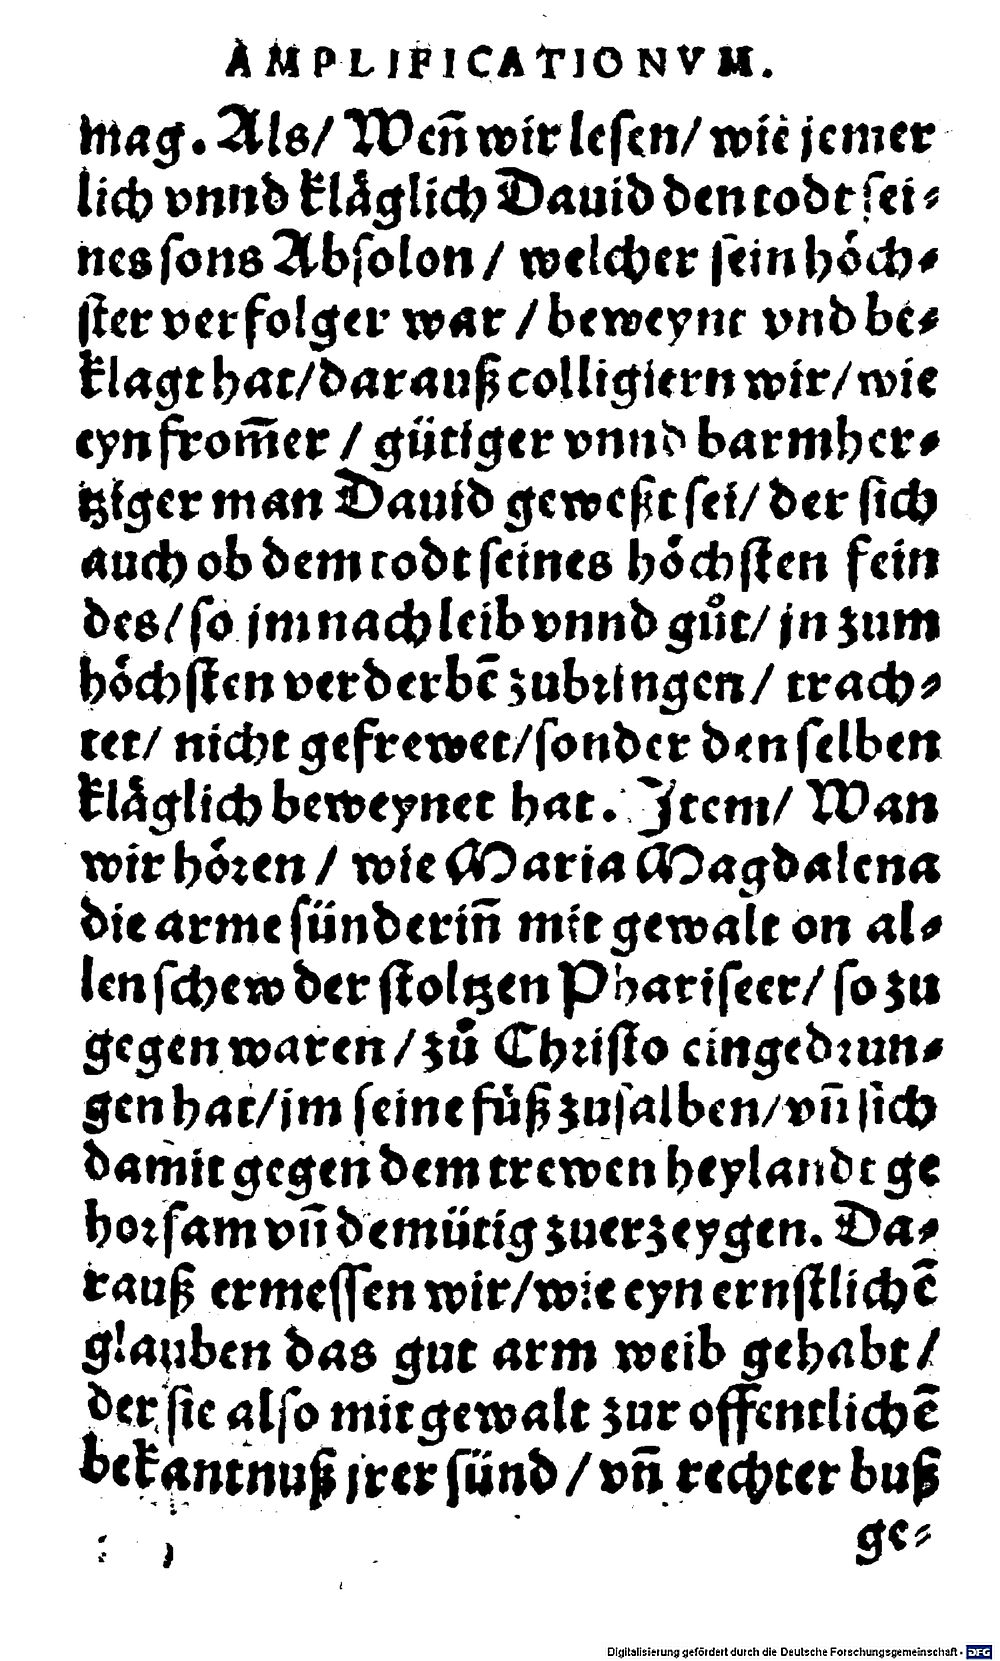 AMPLIFICATIONVM.
mag. Als/ Weñ wir lesen/ wie jemer
lich vnnd klåglich Dauid den todt sei⸗
nes sons Absolon / welcher sein hóch⸗
ster verfolger war / beweynt vnd be⸗
klagt hat/ darauß colligiern wir/ wie
eyn from̃er / gütiger vnnd barmher⸗
tziger man Dauid geweßt sei/ der sich
auch ob dem todt seines hóchsten fein
des/ so jm nach leib vnnd gůt/ jn zum
hóchsten verderbẽ zubringen/ trach⸗
tet/ nicht gefrewet/ sonder den selben
klåglich beweynet hat. Item/ Wan
wir hóren / wie Maria Magdalena
die arme sünderiñ mit gewalt on al⸗
len schew der stoltzen Phariseer/ so zu
gegen waren / zů Christo eingedrun⸗
gen hat/ jm seine fůß zusalben/ vñ sich
damit gegen dem trewen heylandt ge
horsam vñ demütig zuerzeygen. Da⸗
rauß ermessen wir/ wie eyn ernstlichẽ
glauben das gut arm weib gehabt/
der sie also mit gewalt zur offentlichẽ
bekantnuß jrer sünd / vñ rechter buß
ge⸗
Digitalisierung gefördert durch die Deutsche Forschungsgemeinschaft - DFG